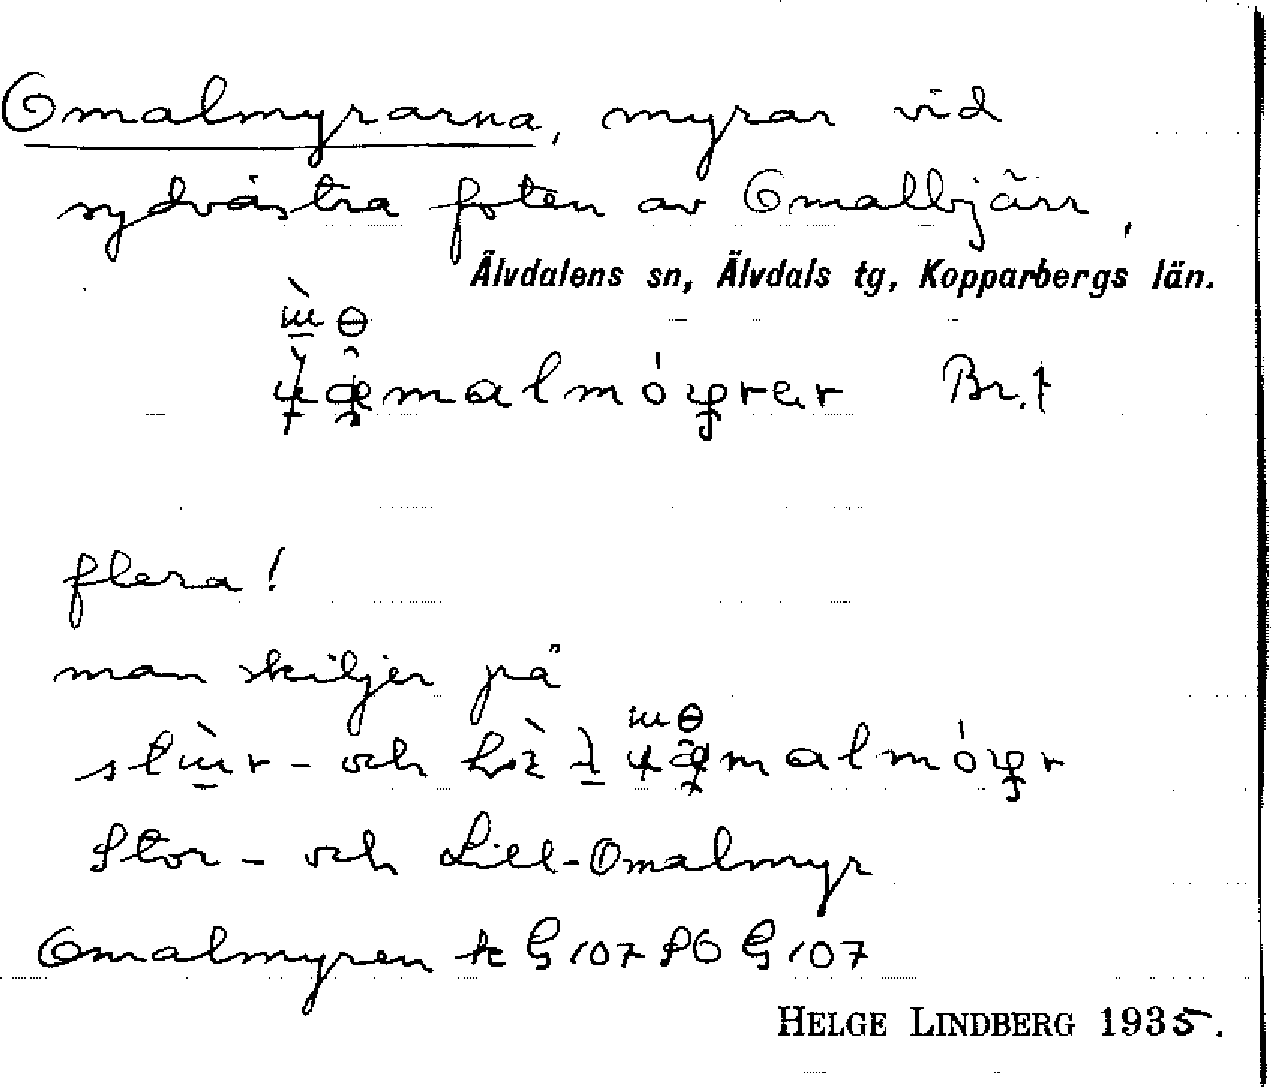 Omalmyrarna, myrar vid
sydvästra foten av Omalbjärr,
Älvdalens sn, Älvdals tg, Kopparbergs län.
Br. t
flera!
man skiljer på
och
Stor- och Lill-Omalmyr
Omalmyren k G 107 SO G 107
HELGE LINDBERG 1935.